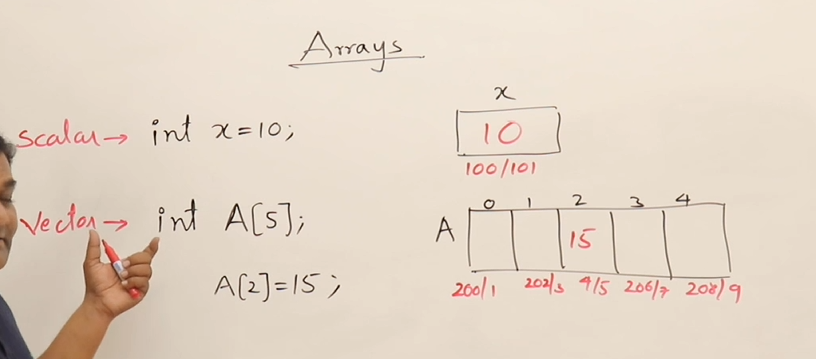 Arrays
Scalar → int x=10;
x
10
100/101
Vector → int A[5];
A[2]=15;
0 1 2 3 4
A
15
200/1 202/3 4/5 206/7 208/9